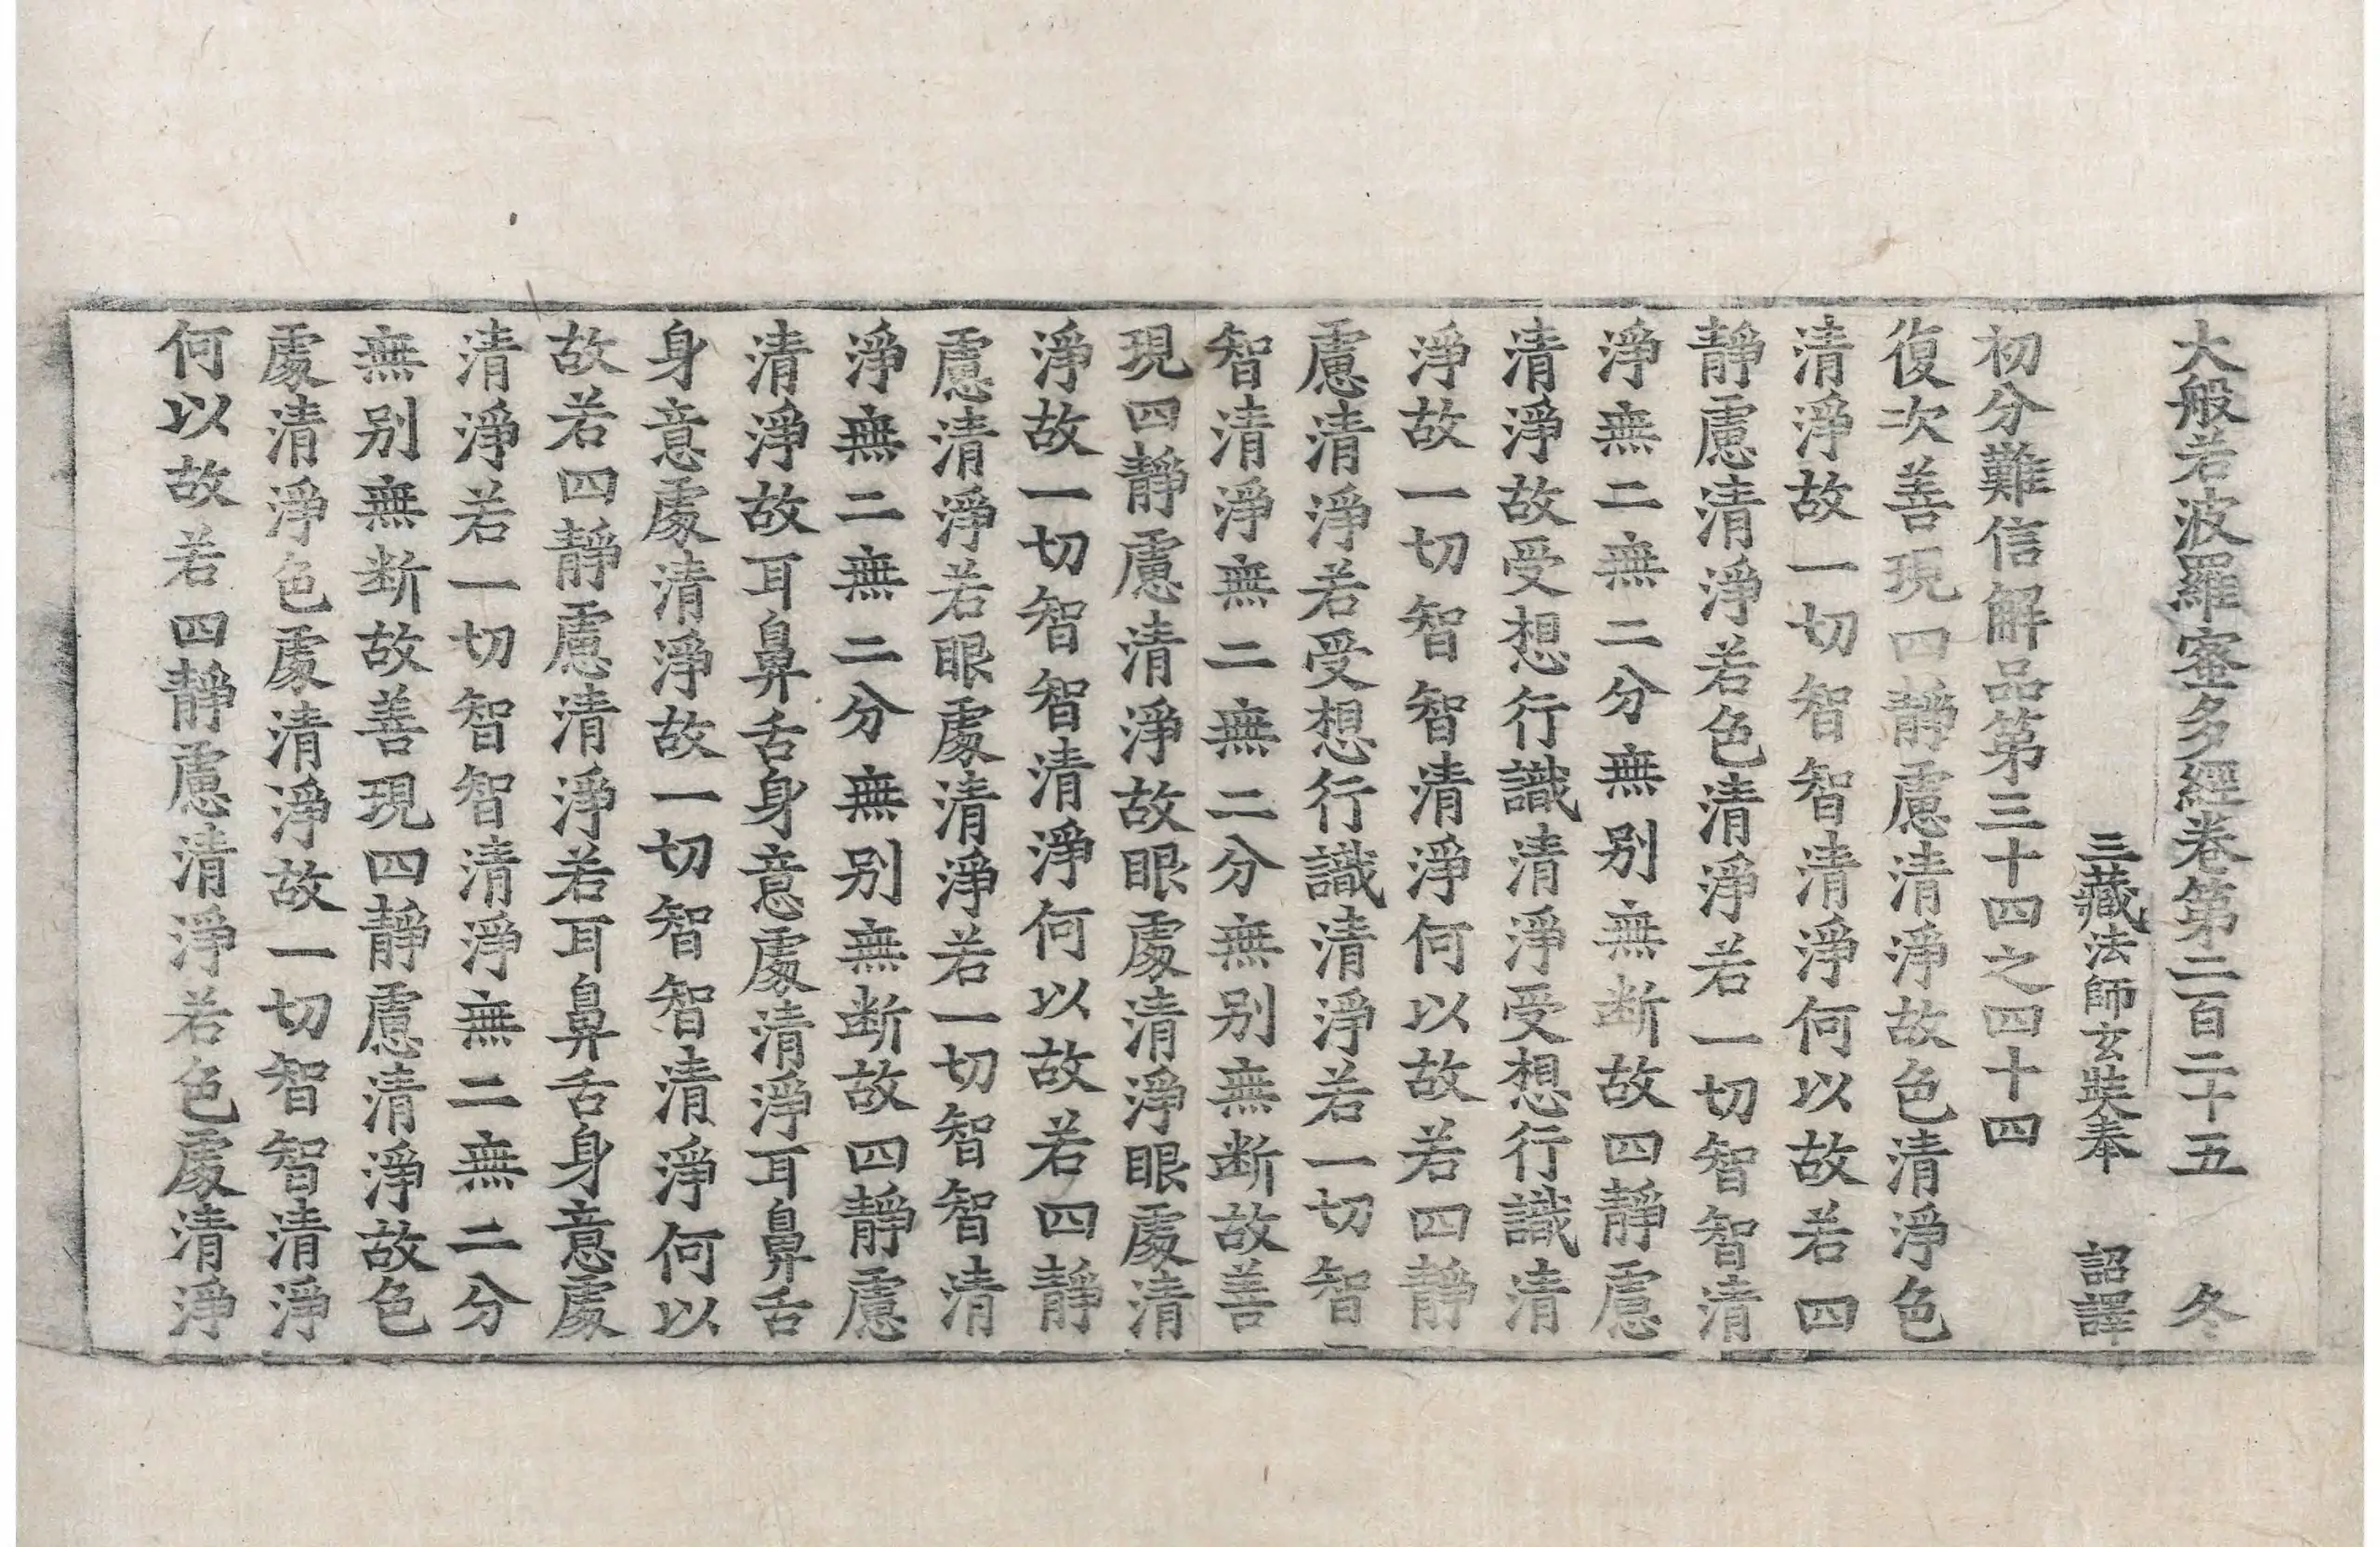 大般若波羅蜜多經卷第二百二十五 冬
三藏法師玄奘奉 詔譯
初分難信解品第三十四之四十四
復次善現四靜慮清淨故色清淨色
清淨故一切智智清淨何以故若四
靜慮清淨若色清淨若一切智智清
淨無二無二分無別無斷故四靜慮
清淨故受想行識清淨受想行識清
淨故一切智智清淨何以故若四靜
慮清淨若受想行識清淨若一切智
智清淨無二無二分無別無斷故善
現四靜慮清淨故眼處清淨眼處清
淨故一切智智清淨何以故若四靜
慮清淨若眼處清淨若一切智智清
淨無二無二分無別無斷故四靜慮
清淨故耳鼻舌身意處清淨耳鼻舌
身意處清淨故一切智智清淨何以
故若四靜慮清淨若耳鼻舌身意處
清淨若一切智智清淨無二無二分
無別無斷故善現四靜慮清淨故色
處清淨色處清淨故一切智智清淨
何以故若四靜慮清淨若色處清淨